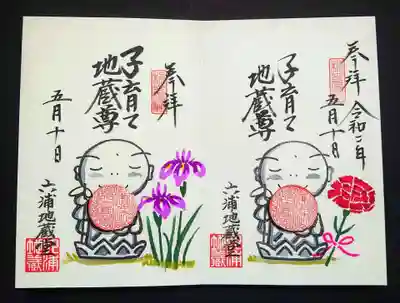 奉拝 令和二年
五月十日
子育て
地蔵尊
六浦地蔵堂
奉拝
子育て
地蔵尊
五月十日
六浦地蔵堂